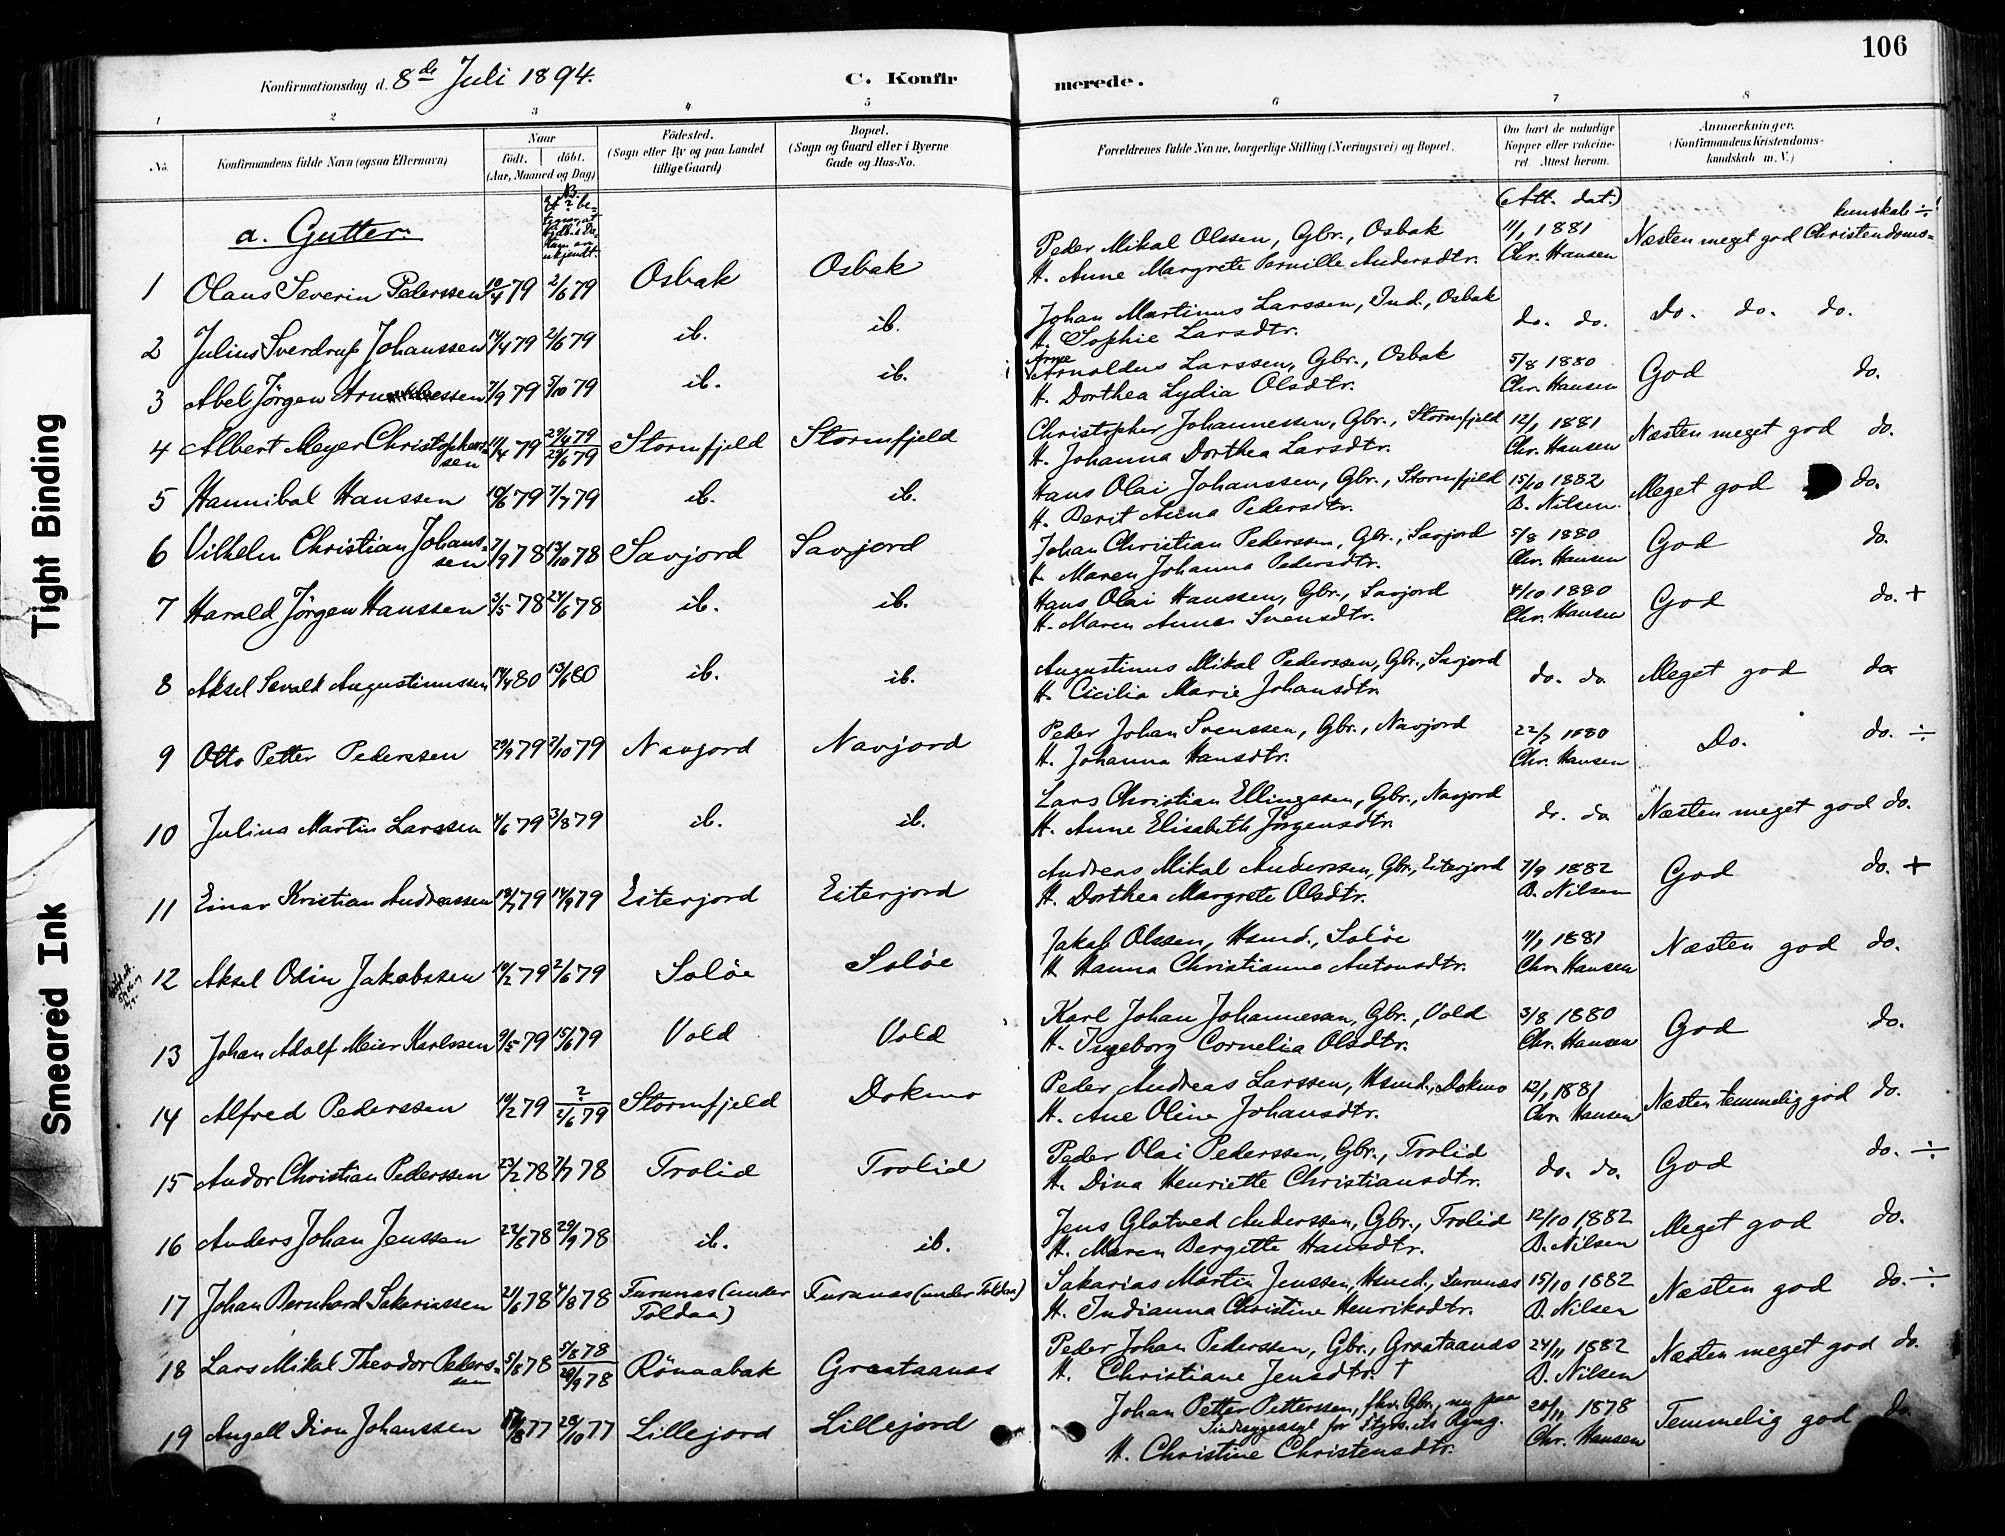 106
Konfirmationsdag d. 8de Juli 1894.
C. Konfirmerede.
1 2 3 4 5 6 7 8
No. Konfirmandens fulde Navn (ogsaa Efternavn) Naar født. døbt. (Aar, Maaned og Dag) Födested. (Sogn eller By og paa Landet tillige Gaard) Bopæl. (Sogn og Gaard eller i Byerne Gade og Hus-No. Forældrenes fulde Navne, borgerlige Stilling (Næringsvei) og Bopæl. Om havt de naturlige Kopper eller vakcineret. Attest herom. Anmærkninger. (Konfirmandens Kristendomskundskab m. V.)
(Att. dat.)
a. Gutter.
1 Olaus Severin Pederssen 10/4 79 2/6 79 Osbak Osbak Peder Mikal Olssen, Gbr., Osbak 11/1 1881 Næsten meget god Christendoms=kunskab ÷
H. Anne Margrete Pernille Andersdtr. Chr. Hansen
2 Julius Sverdrup Johanssen 14/4 79 2/6 79 ib. ib. Johan Martinus Larssen, Ind., Osbak do. do. Do. do. do.
H. Sophie Larsdtr.
3 Abel Jörgen Arnessen 7/9 79 5/10 79 ib. ib. Arne Arnoldus Larssen, Gbr., Osbak 5/8 1880 God do.
H. Dorthea Lydia Olsdtr. Chr. Hansen
4 Albert Meyer Christophers=sen 11/4 79 29/4 79 29/6 79 Stormfjeld Stormfjeld Christopher Johannessen, Gbr., Stormfjeld 12/1 1881 Næsten meget god do.
H. Johanna Dorthea Larsdtr. Chr. Hansen
5 Hannibal Hanssen 10/6 79 7/7 79 ib. ib. Hans Olai Johanssen, Gbr., Stormfjeld 15/10 1882 Meget god do.
H. Berit Anna Pedersdtr. B. Nilsen.
6 Vilhelm Christian Johans=sen 7/9 78 13/10 78 Savjord Savjord Johan Christian Pederssen, Gbr., Savjord 5/8 1880 God do.
H. Maren Johanna Pedersdtr. Chr. Hansen
7 Harald Jörgen Hanssen 3/5 78 24/6 78 ib. ib. Hans Olai Hanssen, Gbr., Savjord 4/10 1880 God do. +
H. Maren Anna Svensdtr. Chr. Hansen
8 Aksel Sevald Augustinussen 14/4 80 13/6 80 ib. ib. Augustinus Mikal Pederssen, Gbr., Savjord do. do Meget god do
H. Cicilia Marie Johansdtr.
9 Otto Petter Pederssen 29/9 79 2/10 79 Navjord Navjord Peder Johan Svenssen, Gbr., Navjord 22/7 1880 Do. do. ÷
H. Johanna Hansdtr. Chr. Hansen
10 Julius Martin Larssen 4/6 79 3/8 79 ib. ib. Lars Christian Ellingssen, Gbr., Navjord do. do Næsten meget god do.
H. Anne Elisabeth Jörgensdtr.
11 Einar Kristian Andreassen 18/7 79 14/9 79 Eiterjord Eiterjord Andreas Mikal Anderssen, Gbr., Eiterjord 7/9 1882 God do. +
H. Dorthea Margrete Olsdtr. B. Nilsen
12 Aksel Odin Jakobssen 10/2 79 2/6 79 Solöe Solöe Jakob Olssen, Hsmd., Solöe 11/1 1881 Næsten god do.
H Hanna Christianna Antonsdtr. Chr. Hansen
13 Johan Adolf Meier Karlssen 9/5 79 15/6 79 Vold Vold Karl Johan Johannessen, Gbr., Vold 3/8 1880 God do.
H. Ingeborg Cornelia Olsdtr. Chr. Hansen
14 Alfred Pederssen 10/2 79 ? 2/6 79 Stormfjeld Dokmo Peder Andreas Larssen, Hsmd., Dokmo 12/1 1881 Næsten temmelig god do.
H. Ane Oline Johansdtr. Chr. Hansen
15 Andor Christian Pederssen 23/2 78 7/7 78 Trolid Trolid Peder Olai Pederssen, Gbr., Trolid do. do. God do. ÷
H. Dina Henriette Christiansdtr.
16 Anders Johan Jenssen 22/6 78 29/9 78 ib. ib. Jens Glatved Anderssen, Gbr., Trolid 12/10 1882 Meget god do.
H. Maren Bergitte Hansdtr. B. Nilsen
17 Johan Bernhard Sakariassen 21/6 78 4/8 78 Furunas (under Toldaa) Furunas (under Toldaa) Sakarias Martin Jenssen, Hsmd., Furunas 15/10 1882 Næsten god do. ÷
H. Indianna Christine Henriksdtr. B. Nilsen
18 Lars Mikal Theodor Peders=sen 5/8 78 5/8 78 29/9 78 Rönaabak Graataanas Peder Johan Pederssen, Gbr., Graataanas 24/11 1882 Næsten meget god do.
H. Christiane Jensdtr. † B. Nilsen
19 Angell Dion Johanssen 17/8 77 28/10 77 Lillejord Lillejord Johan Petter Petterssen, fhv. Gbr., nu paa 20/11 1878 Temmelig god do.
Sindsygeasyl for
H. Christine Christensdtr. Chr. Hansen
Tight Binding
Smeared Ink